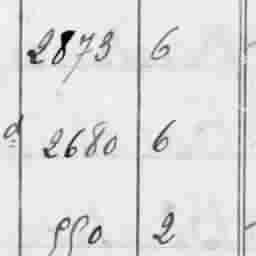 2873 6
d 2680 6
550 2